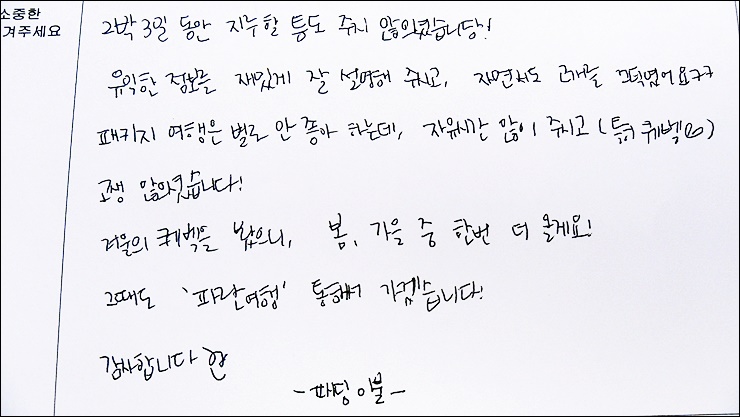 소중한
겨주세요
2박 3일 동안 지루할 틈도 주시 않으셨습니당!
유익한 정보를 재밌게 잘 설명해 주시고, 자면서도 고개를 끄덕였어요ㅋㅋ
패키지 여행은 별로 안 좋아 하는데, 자유시간 많이 주시고 (특히 퀘벡♡)
고생 많으셨습니다!
겨울의 퀘벡을 봤으니, 봄, 가을 중 한번 더 올게요!
그때도 '파란여행' 통해서 가겠습니다!
감사합니다
- 패딩이불 -